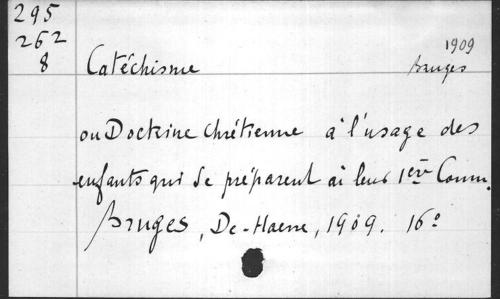 295
262
8
1909
Bruges
Catéchisme
ou Doctrine Chrétienne à l'usage des
enfants qui se préparent à leur 1ère Comm.
Bruges, De-Haene, 1909. 16°